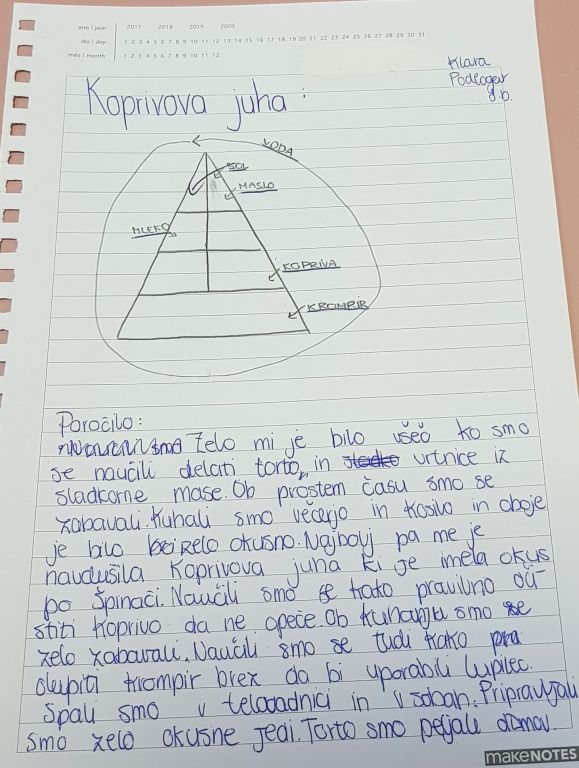 ano | year 2017 2018 2019 2020
dia | day 1 2 3 4 5 6 7 8 9 10 11 12 13 14 15 16 17 18 19 20 21 22 23 24 25 26 27 28 29 30 31
mês | month 1 2 3 4 5 6 7 8 9 10 11 12
Klara
Podlogar
8.b.
Koprivova juha:
VODA
SOL
MASLO
MLEKO
KOPRIVA
KROMPIR
Poročilo:
smo Zelo mi je bilo všeč ko smo
se naučili delati torto, in sladko vrtnice iz
sladkorne mase. Ob prostem času smo se
zabavali. Kuhali smo večerjo in kosilo in oboje
je bilo zelo okusno. Najbolj pa me je
navdušila Koprivova juha ki je imela okus
po špinači. Naučili smo se kako pravilno oči-
stiti koprivo da ne opeče. Ob kuhanju smo se
zelo zabavali. Naučili smo se tudi kako
olupiti krompir brez da bi uporabili lupilec.
Spali smo v telovadnici in v sobah. Pripravljali
smo zelo okusne jedi. Torto smo peljali domov.
makeNOTES